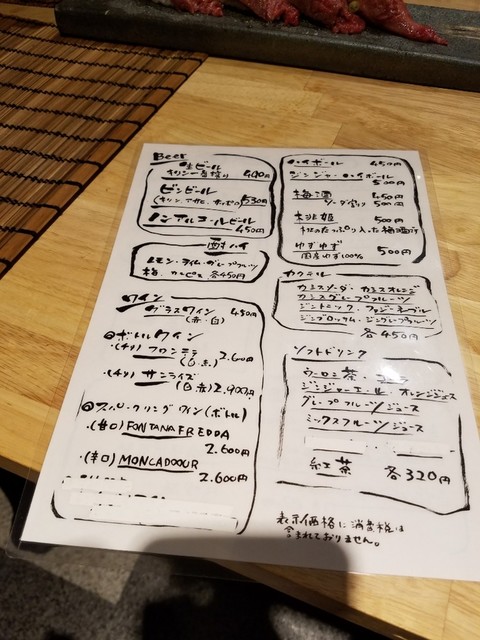 Beer
生ビール
キリン一番搾り 490円
ビンビール
(キリン、アサヒ、ホッピー) 530円
ノンアルコールビール
450円
酎ハイ
レモン・ライム・グレープフルーツ
梅、カルピス 各450円
ワイン
グラスワイン 450円
(赤・白)
ボトルワイン
・(チリ) フロンテラ
(白・赤) 2.600円
・(チリ) サンライズ
(白・赤) 2,900円
スパークリングワイン(ボトル)
・(甘口) FONTANAFREDDA
2.600円
・(辛口) MONCADOOUR
2.600円
ハイボール 450円
ジンジャーハイボール
500円
梅酒 450円
ソーダ割り 500円
桃姫 500円
桃のたっぷり入った梅酒です
ゆずゆず 500円
国産ゆず100%
カクテル
カシスソーダ・カシスオレンジ
カシスグレープフルーツ
ジントニック・ファジーネーブル
ジンブロッサム・ジングレープフルーツ
各450円
ソフトドリンク
ウーロン茶・コーラ
ジンジャーエール・オレンジジュース
グレープフルーツジュース
ミックスフルーツジュース
紅茶 各320円
表示価格に消費税は
含まれておりません。